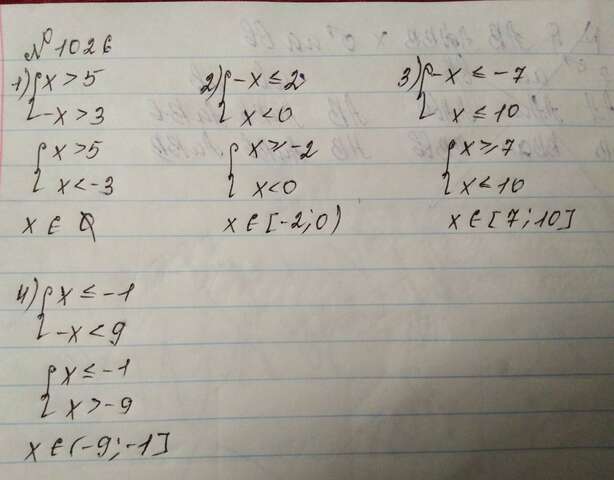 № 1026
1) { x > 5
-x > 3
{ x > 5
x < -3
x ∈ ∅
2) { -x ≤ 2
x < 0
{ x ≥ -2
x < 0
x ∈ [-2; 0)
3) { -x ≤ -7
x ≤ 10
{ x ≥ 7
x ≤ 10
x ∈ [7; 10]
4) { x ≤ -1
-x < 9
{ x ≤ -1
x > -9
x ∈ (-9; -1]